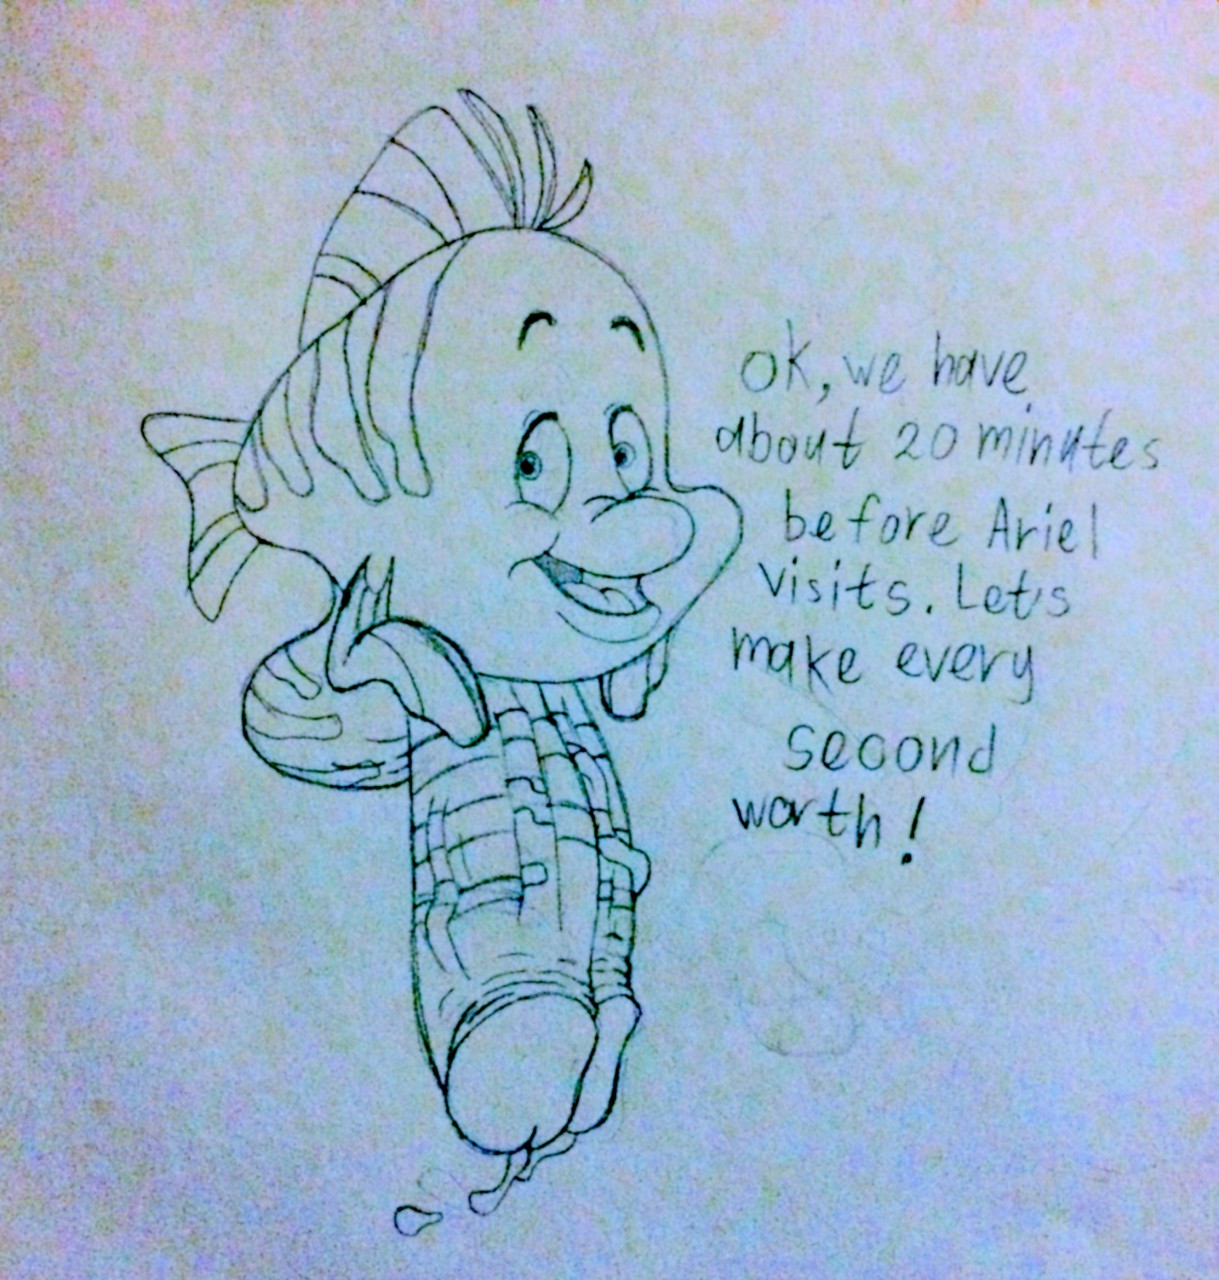 OK, we have
about 20 minutes
before Ariel
visits. Let's
make every
seoond
worth!